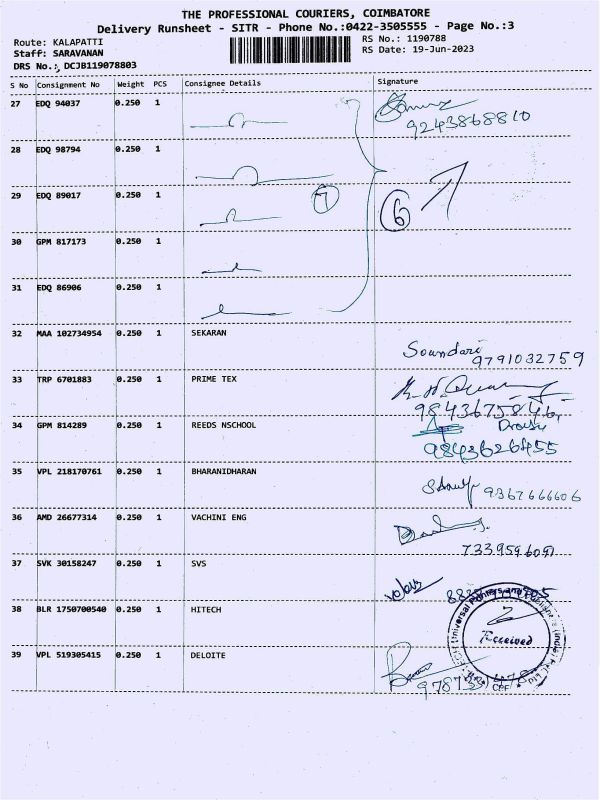 THE PROFESSIONAL COURIERS, COIMBATORE
Delivery Runsheet - SITR - Phone No.:0422-3505555 - Page No.:3
Route: KALAPATTI
RS No.: 1190788
Staff: SARAVANAN
RS Date: 19-Jun-2023
DRS No.: DCJB119078803
S No Consignment No Weight PCS Consignee Details Signature
27 EDQ 94037 0.250 1
9243868810
28 EDQ 98794 0.250 1
29 EDQ 89017 0.250 1 7 6
30 GPM 817173 0.250 1
31 EDQ 86906 0.250 1
32 MAA 102734954 0.250 1 SEKARAN
Soundari
9791032759
33 TRP 6701883 0.250 1 PRIME TEX
9843675846
34 GPM 814289 0.250 1 REEDS NSCHOOL
9843626455
35 VPL 218170761 0.250 1 BHARANIDHARAN
9367666606
36 AMD 26677314 0.250 1 VACHINI ENG
7339596091
37 SVK 30158247 0.250 1 SVS
38 BLR 1750700540 0.250 1 HITECH
Universal Printers and Publishers (India) Pvt Ltd
Received
39 VPL 519305415 0.250 1 DELOITE